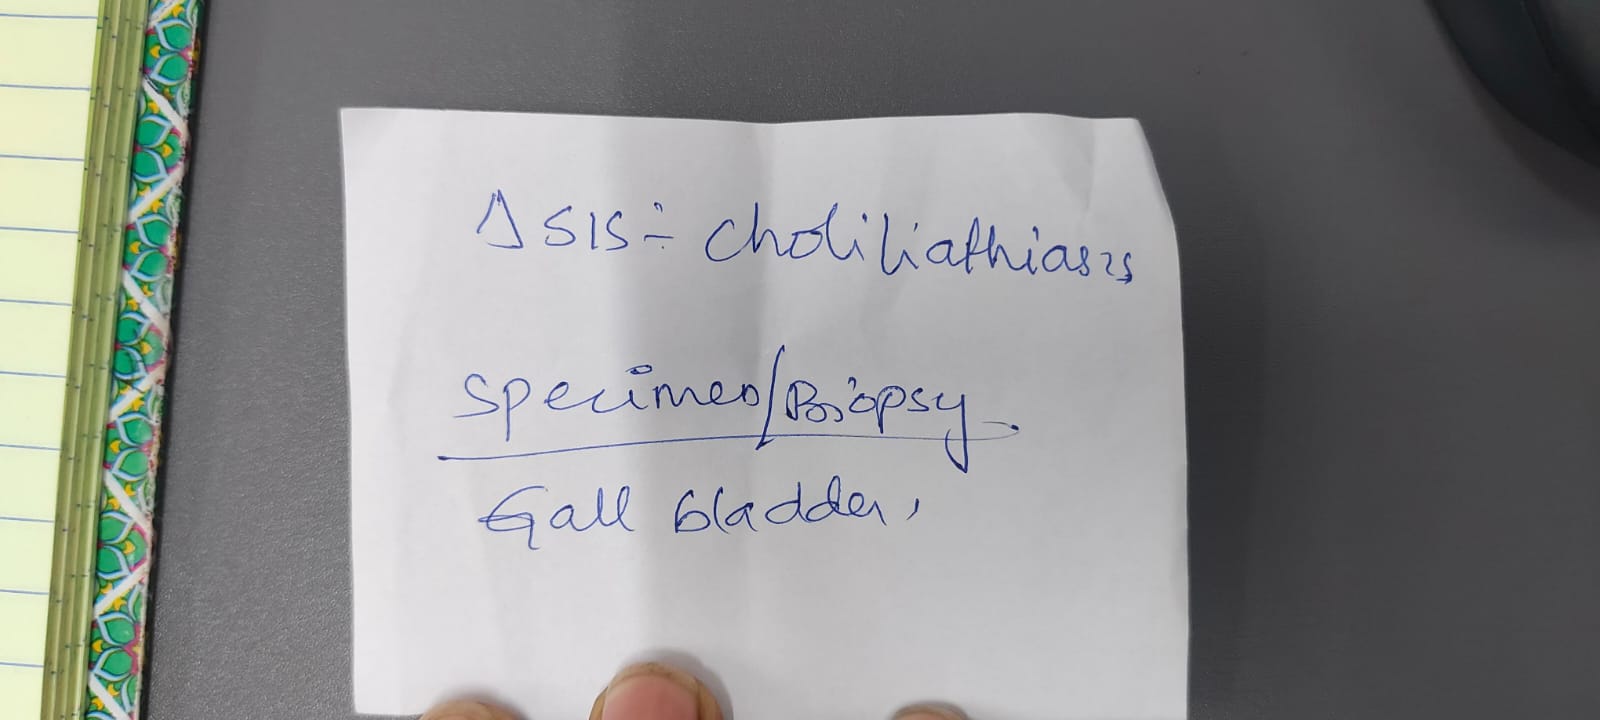 Δ SIS ÷ choliliathiasis
specimen/Biopsy
Gall bladder,